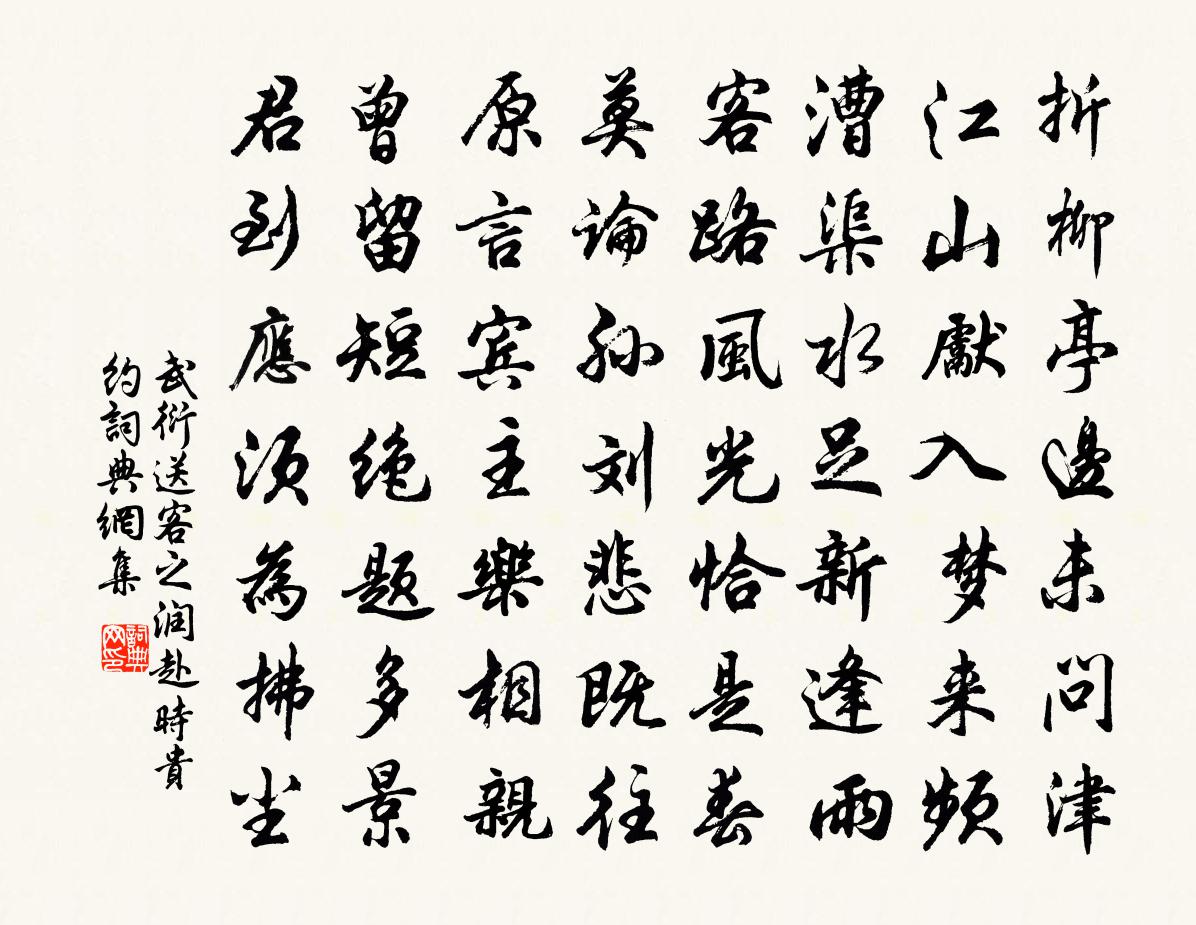 折柳亭邊未問津
江山獻入梦来頻
漕渠水足新逢雨
客路風光恰是春
莫論孙刘悲既往
原言宾主樂相親
曾留短绝题多景
君到應须為拂尘
武衍送客之润赴時貴
约詞典網集
詞典網印